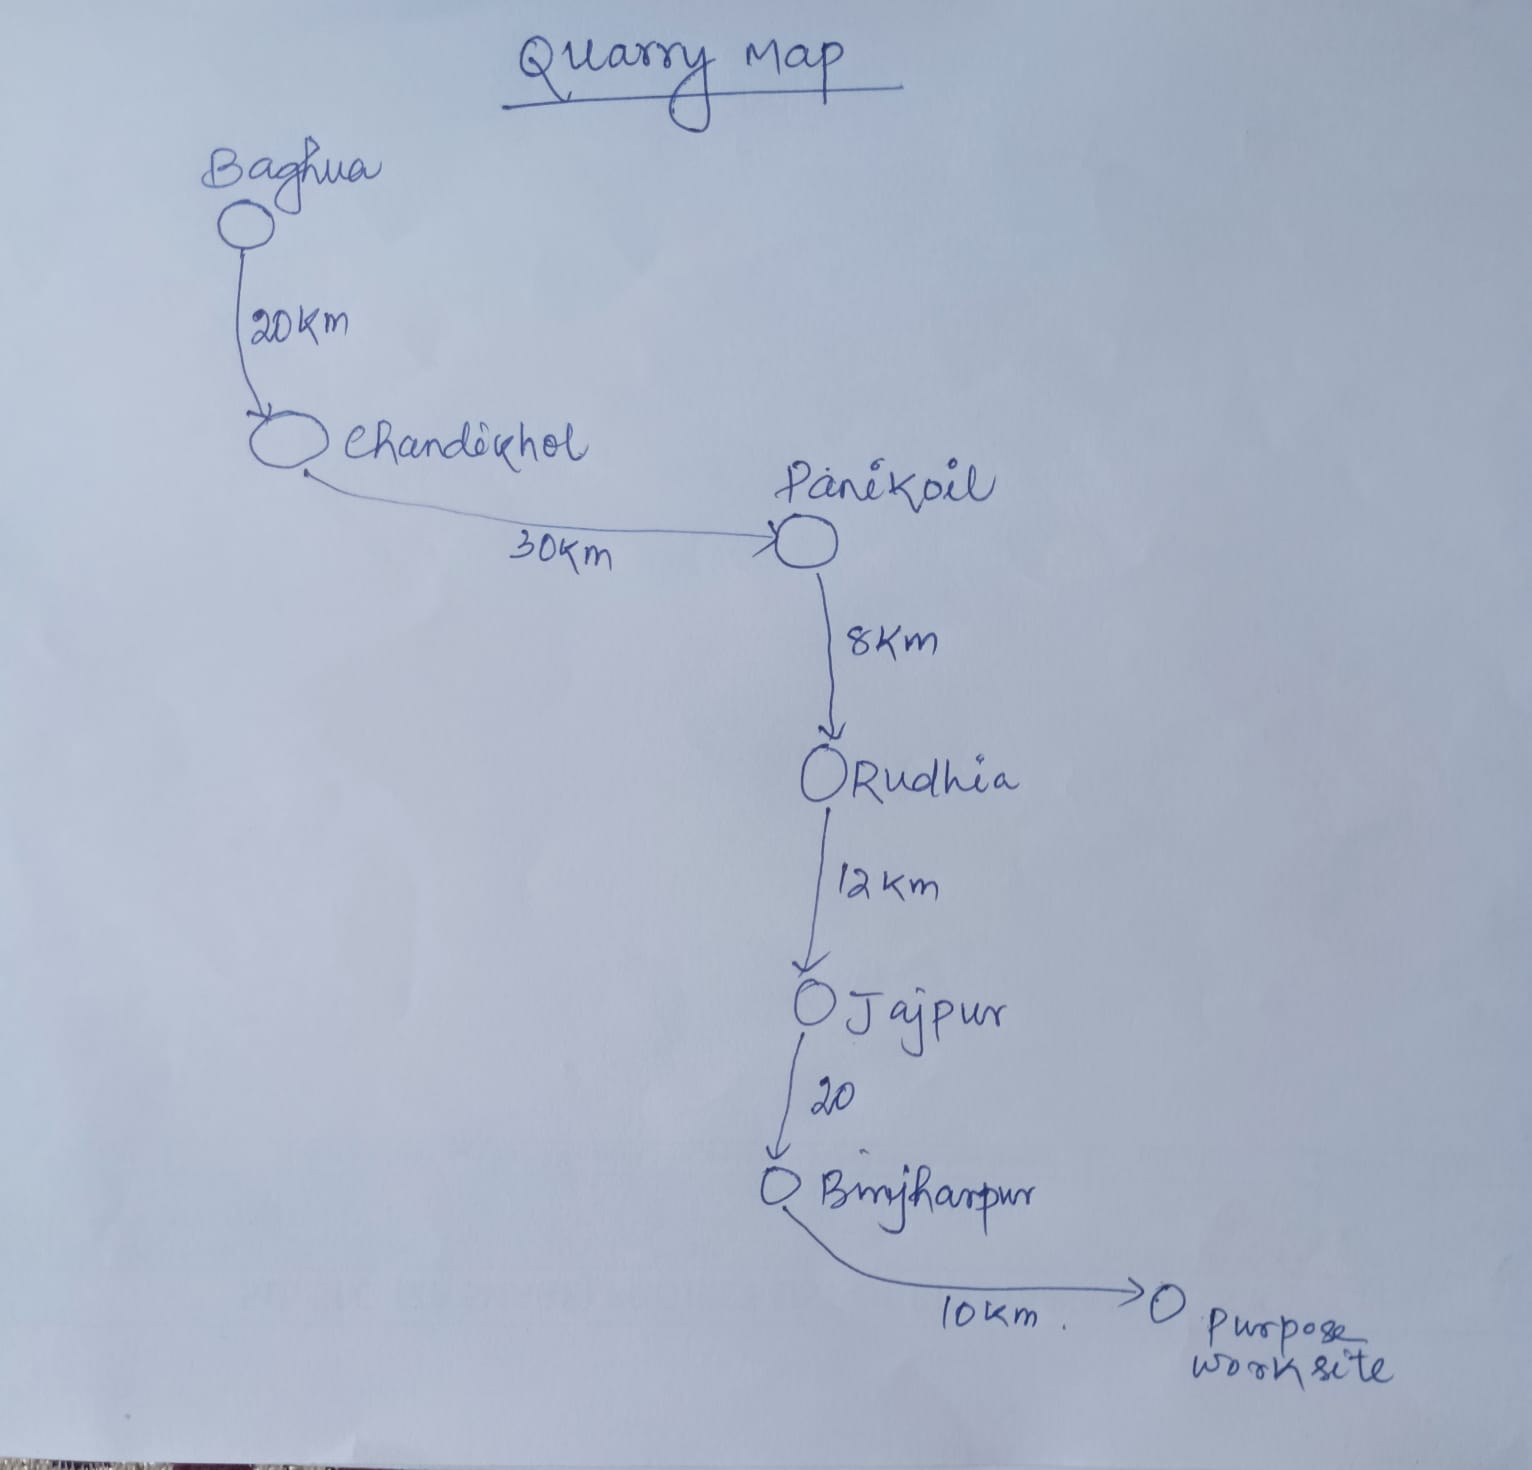 Quarry Map
Baghua
20Km
Chandikhol
Panikoil
30Km
8Km
Rudhia
12Km
Jajpur
20
Binjharpur
10Km.
Purpose
work site